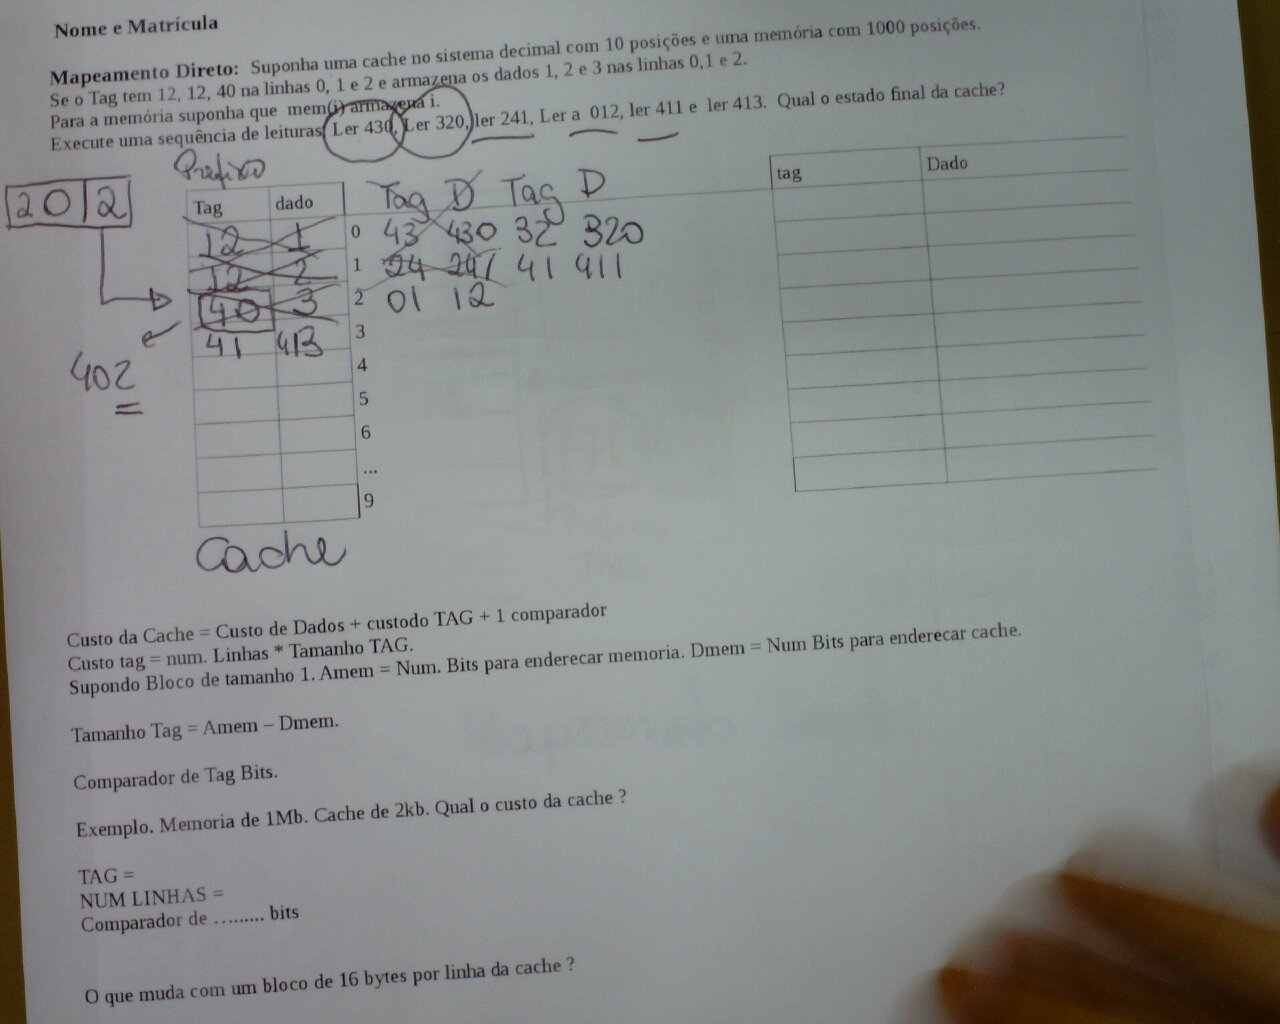 Nome e Matrícula
Mapeamento Direto: Suponha uma cache no sistema decimal com 10 posições e uma memória com 1000 posições.
Se o Tag tem 12, 12, 40 na linhas 0, 1 e 2 e armazena os dados 1, 2 e 3 nas linhas 0,1 e 2.
Para a memória suponha que mem(i) armazena i.
Execute uma sequência de leituras Ler 430, Ler 320, ler 241, Ler a 012, ler 411 e ler 413. Qual o estado final da cache?
Prefixo
2012
Tag dado
Tag D Tag D
tag Dado
12 1 0 43 430 32 320
12 2 1 24 241 41 411
40 3 2 01 12
41 413 3
402
4
5
6
...
9
Cache
Custo da Cache = Custo de Dados + custodo TAG + 1 comparador
Custo tag = num. Linhas * Tamanho TAG.
Supondo Bloco de tamanho 1. Amem = Num. Bits para enderecar memoria. Dmem = Num Bits para enderecar cache.
Tamanho Tag = Amem – Dmem.
Comparador de Tag Bits.
Exemplo. Memoria de 1Mb. Cache de 2kb. Qual o custo da cache ?
TAG =
NUM LINHAS =
Comparador de ......... bits
O que muda com um bloco de 16 bytes por linha da cache ?